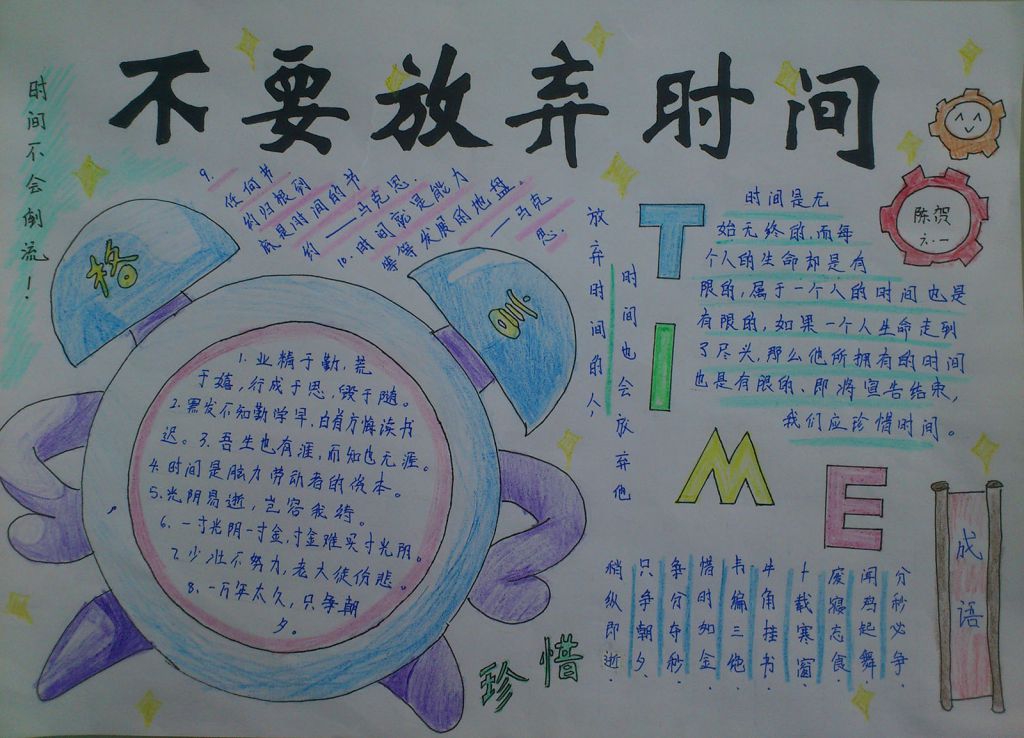 不要放弃时间
时间不会倒流！
9.
任何书
约归根到
底是时间的书
约——马克思.
10.时间就是能力
等等发展的地盘.
——马克
思.
格
言
1.业精于勤，荒
于嬉，行成于思，毁于随。
2.黑发不知勤学早，白首方悔读书
迟。3.吾生也有涯，而知也无涯。
4.时间是脑力劳动者的资本。
5.光阴易逝，岂容我待。
6.一寸光阴一寸金，寸金难买寸光阴。
7.少壮不努力，老大徒伤悲。
8.一万年太久，只争朝
夕。
珍惜
放弃时间的人，
时间也会放弃他
TIME
时间是无
始无终的，而每
个人的生命却是有
限的，属于一个人的时间也是
有限的，如果一个人生命走到
了尽头，那么他所拥有的时间
也是有限的、即将宣告结束，
我们应珍惜时间。
陈贺
六.一
成语
分秒必争
闻鸡起舞.
废寝忘食.
十载寒窗.
牛角挂书.
韦编三绝.
惜时如金.
争分夺秒.
只争朝夕.
稍纵即逝.